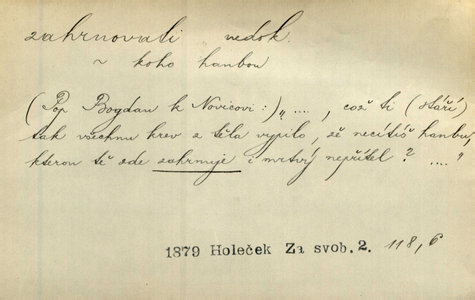 zahrnovati nedok.
~ koho hanbou
(Pop Bogdan k Novicovi:) „...., což ti (stáří)
tak všechnu krev z těla vypilo, že necítíš hanbu,
kterou tě zde zahrnuje i mrtvý nepřítel? ...."
1879 Holeček Za svob. 2. 118,6